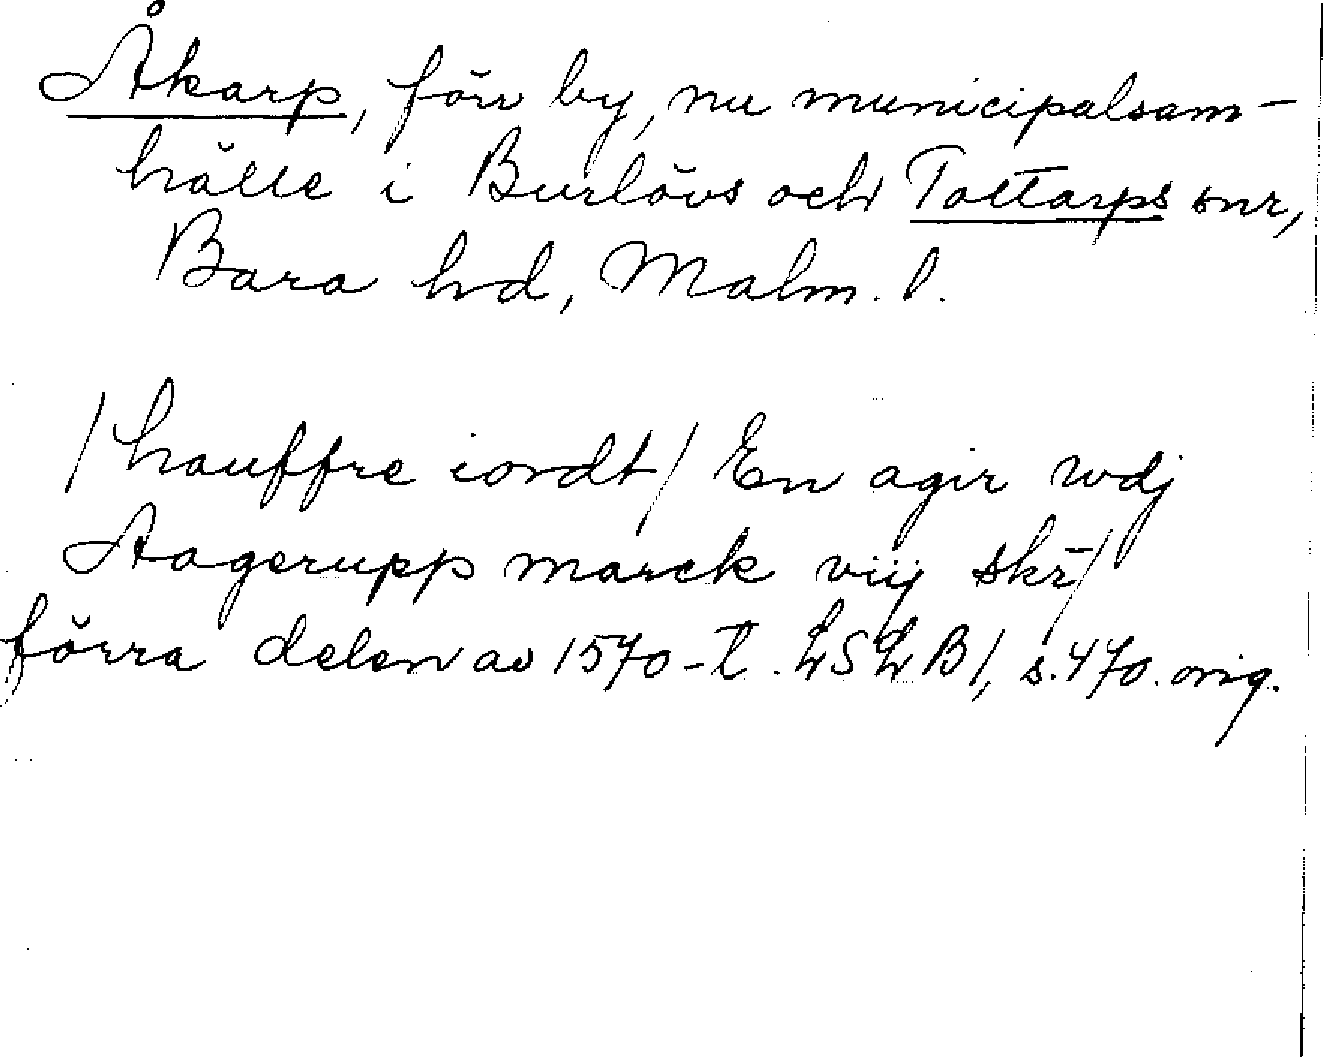 Åkarp, förr by, nu municipalsam-
hälle i Burlövs och Tottarps snr,
Bara hd, Malm. l.
/hauffre iordt/ En agir wdj
Aagerupp marck viij skr/
förra delen av 1570-t. LSLB1, s. 470. orig.